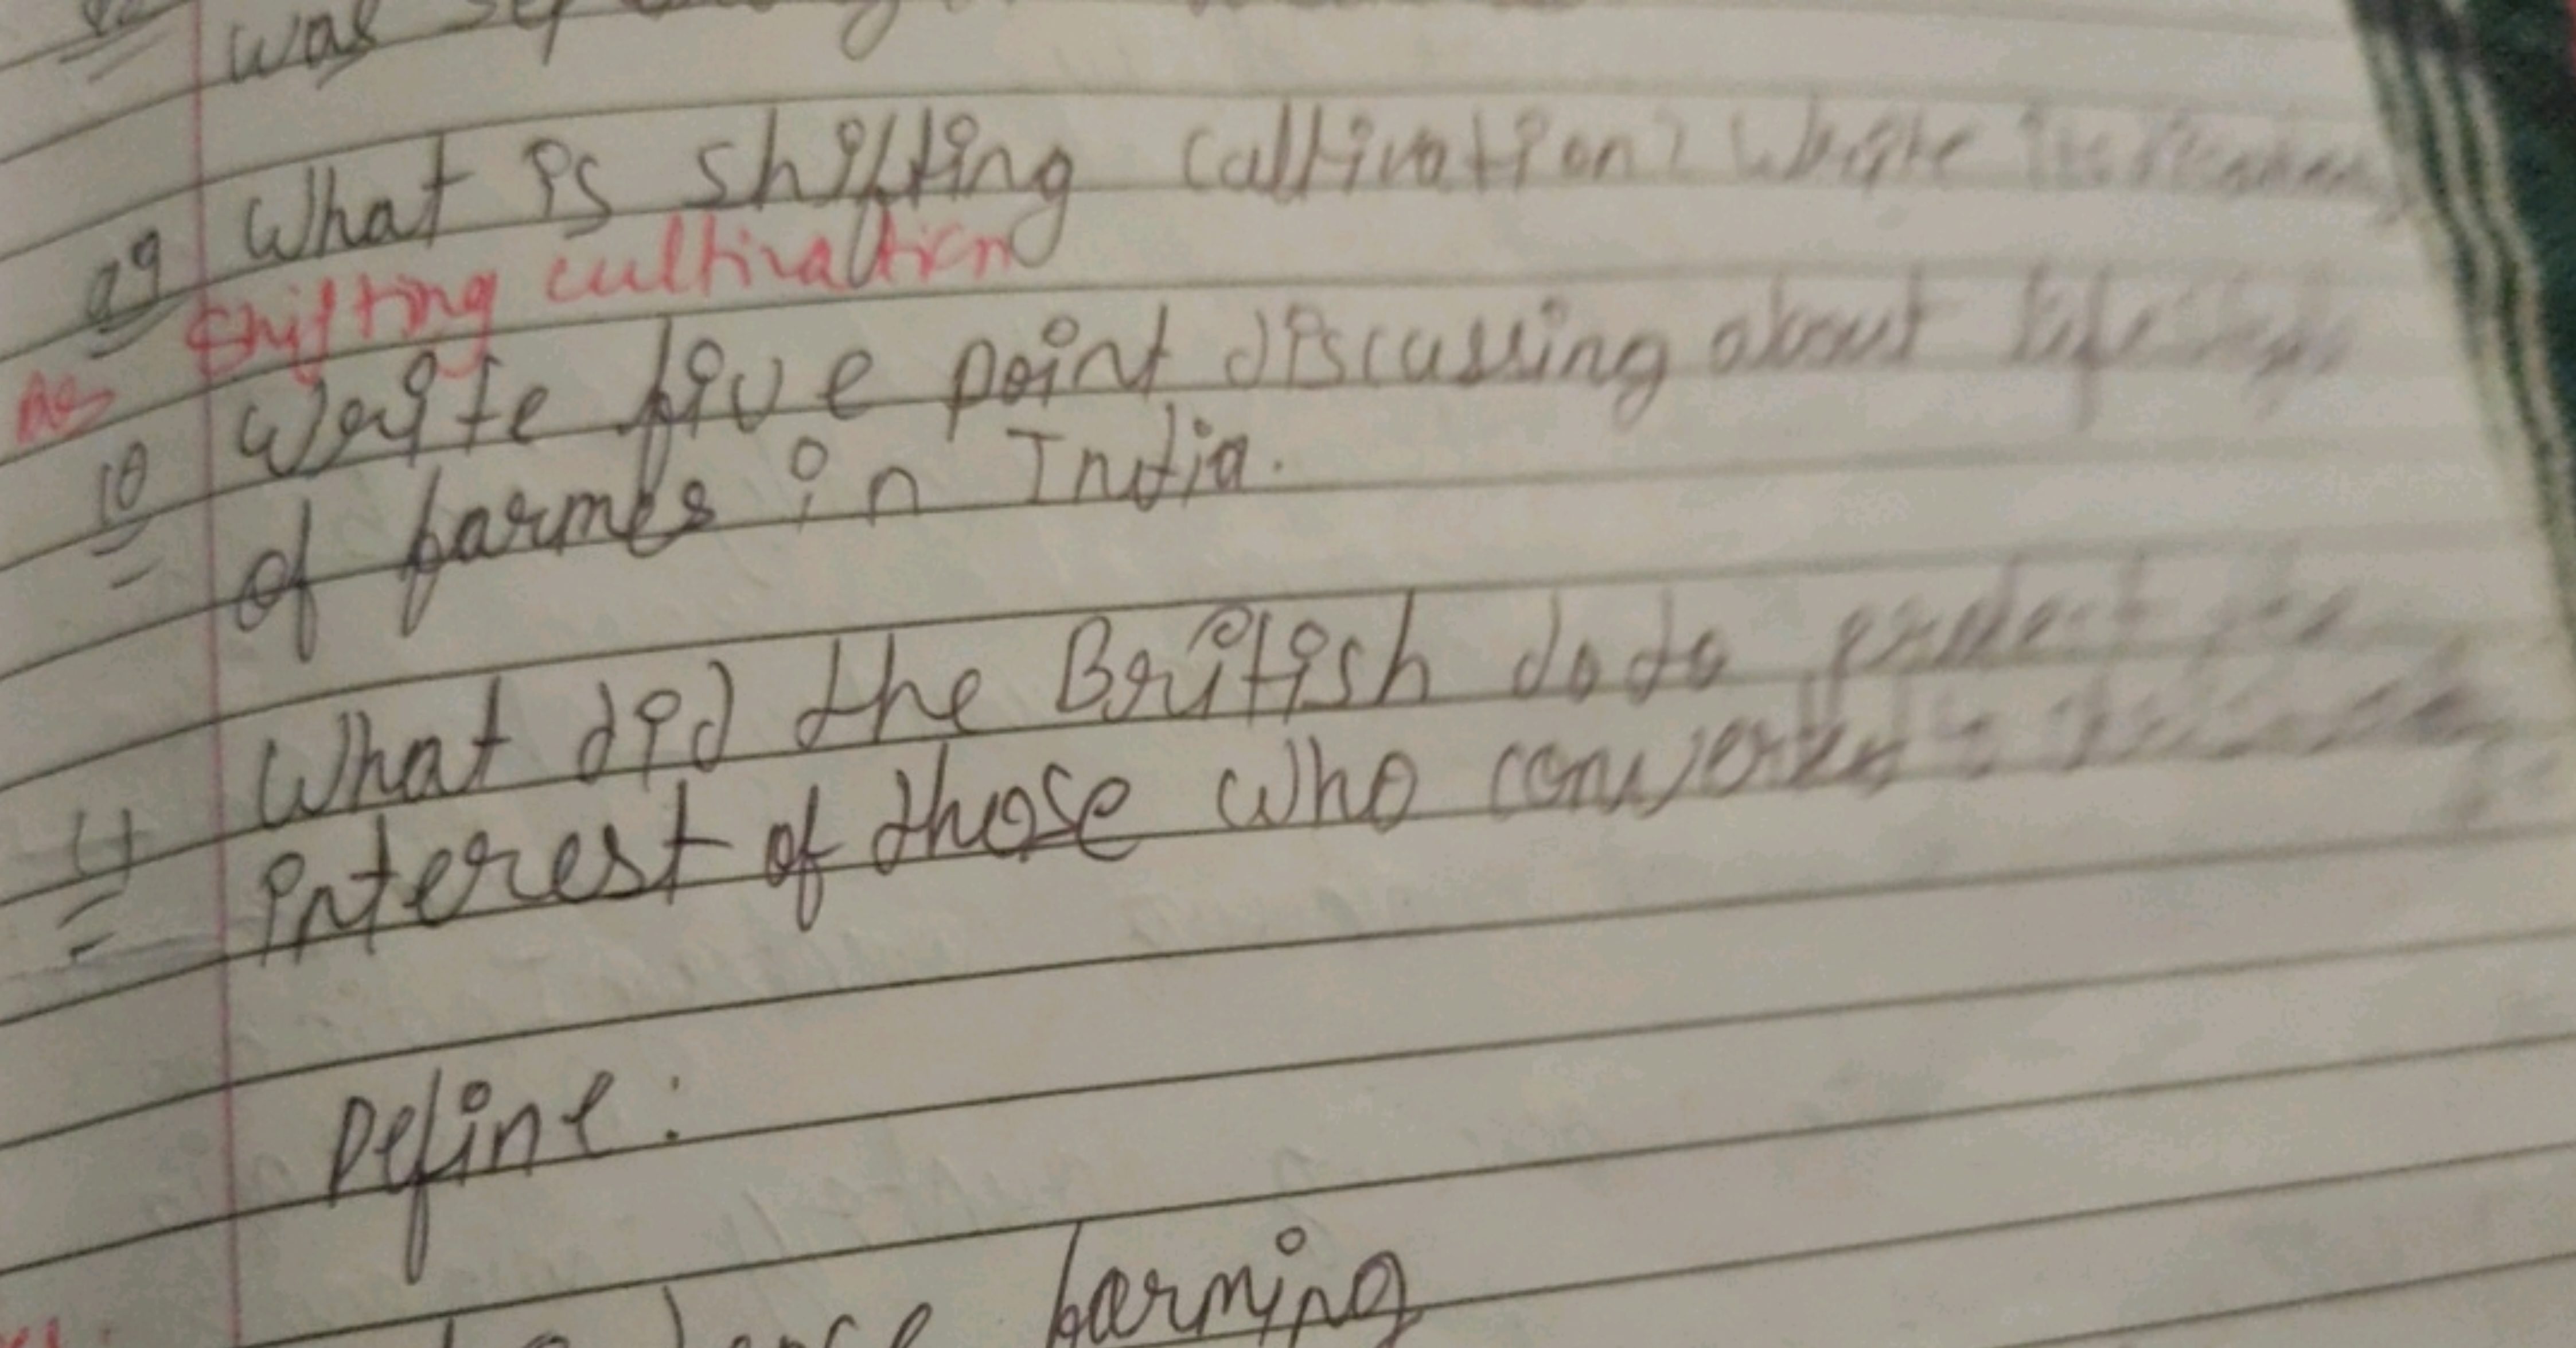 was
29 What is shifting cultivation? Write
Ans Shifting cultivation
10 Write five point discussing about life
of farmes in India.
What did the British do to protect the
interest of those who converted
Define:
farming